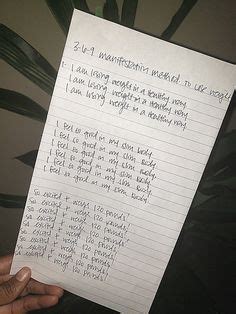 3-6-9 manifestation method to lose weight
1.
I am losing weight in a healthy way
I am losing weight in a healthy way
I am losing weight in a healthy way
I feel so good in my slim body
I feel so good in my slim body
I feel so good in my slim body
I feel so good in my slim body
I feel so good in my slim body
I feel so good in my slim body
So excited I weigh 120 pounds!
So excited I weigh 120 pounds!
So excited I weigh 120 pounds!
So excited I weigh 120 pounds!
So excited I weigh 120 pounds!
So excited I weigh 120 pounds!
So excited I weigh 120 pounds!
So excited I weigh 120 pounds!
So excited I weigh 120 pounds!